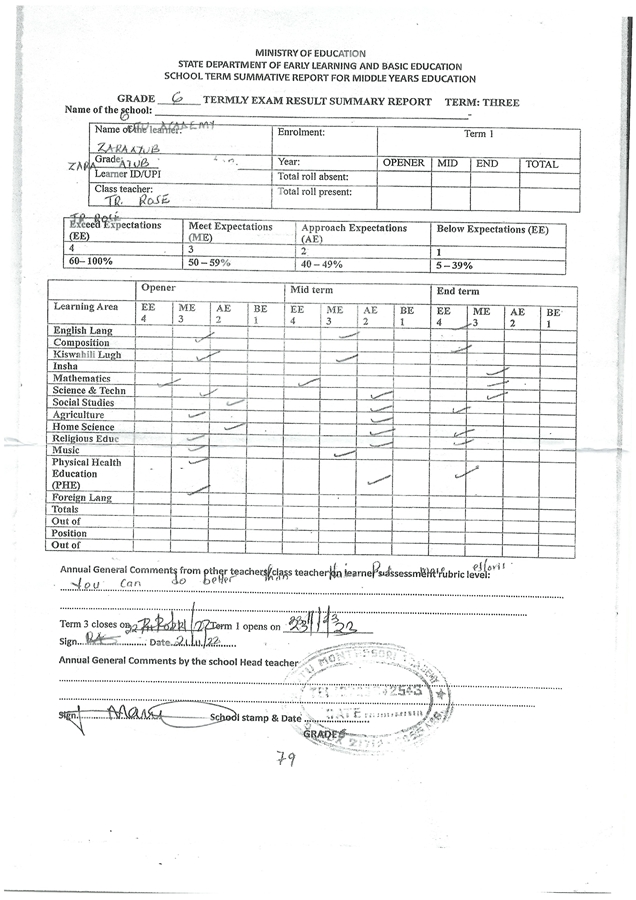 MINISTRY OF EDUCATION
STATE DEPARTMENT OF EARLY LEARNING AND BASIC EDUCATION
SCHOOL TERM SUMMATIVE REPORT FOR MIDDLE YEARS EDUCATION
GRADE 6 TERMLY EXAM RESULT SUMMARY REPORT TERM: THREE
Name of the school:
6
ACADEMY
Name of the learner: Enrolment: Term 1
ZARA ATUB
Grade: Year: OPENER MID END TOTAL
ZARA ATUB
Learner ID/UPI Total roll absent:
Class teacher: Total roll present:
TR. ROSE
Exceed Expectations (EE) Meet Expectations (ME) Approach Expectations (AE) Below Expectations (EE)
4 3 2 1
60–100% 50–59% 40–49% 5–39%
Opener Mid term End term
Learning Area EE 4 ME 3 AE 2 BE 1 EE 4 ME 3 AE 2 BE 1 EE 4 ME 3 AE 2 BE 1
English Lang
Composition
Kiswahili Lugh
Insha
Mathematics
Science & Techn
Social Studies
Agriculture
Home Science
Religious Educ
Music
Physical Health
Education
(PHE)
Foreign Lang
Totals
Out of
Position
Out of
Annual General Comments from other teachers/class teacher on learner's assessment rubric level:
You can do better efforts
Term 3 closes on Term 1 opens on
Sign Date
Annual General Comments by the school Head teacher
Sign. School stamp & Date
GRADE
79